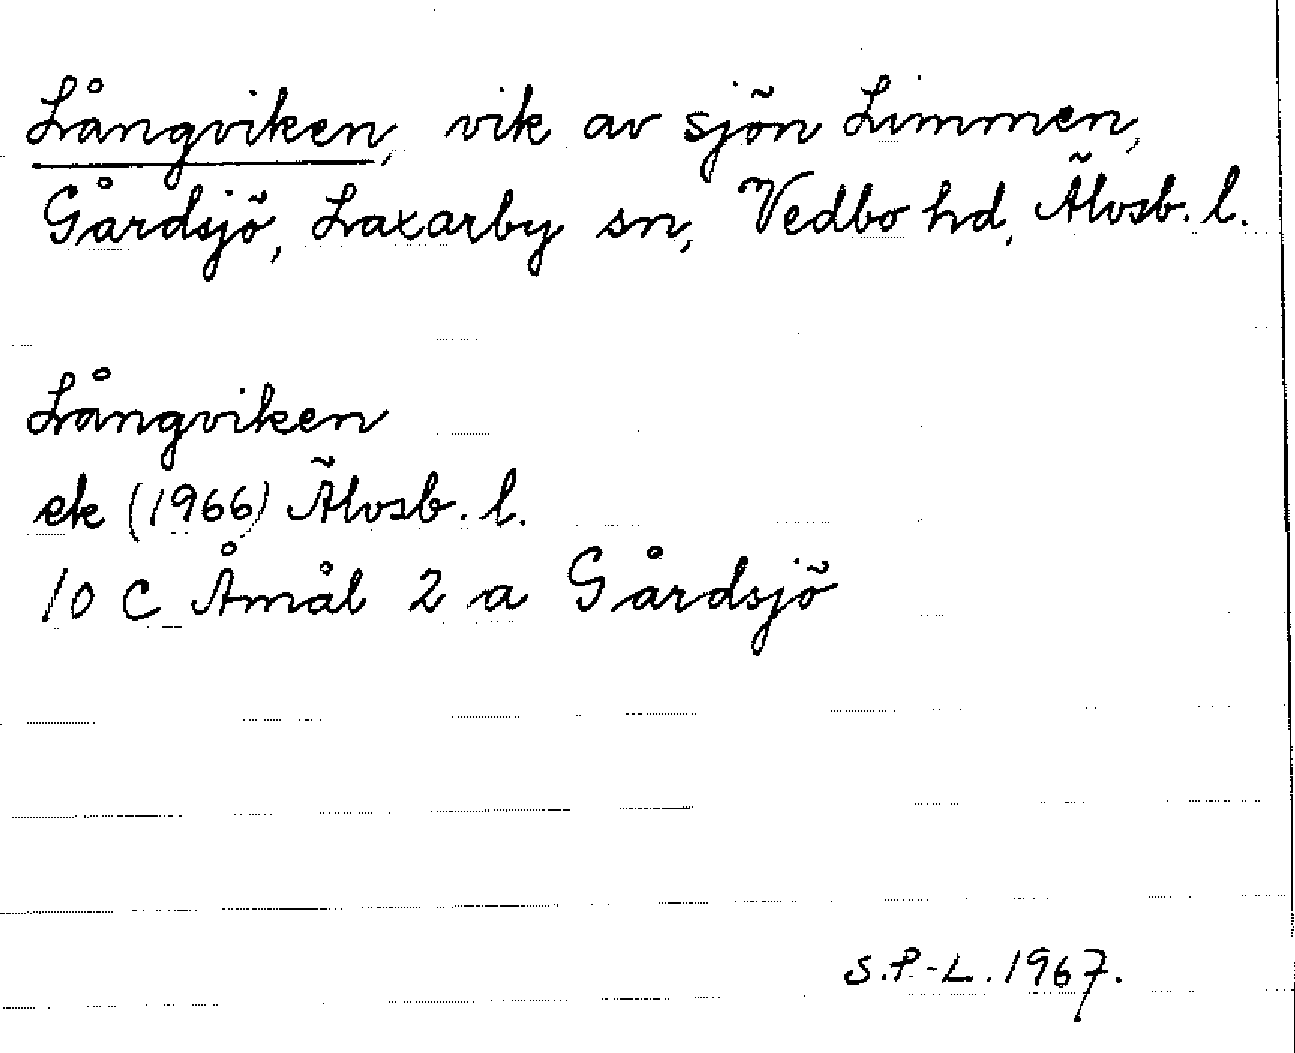 Långviken, vik av sjön Limmen,
Gårdsjö, Laxarby sn, Vedbo hd, Älvsb. l.
Långviken
ek (1966) Älvsb. l.
10 C Åmål 2 a Gårdsjö
S.P-L. 1967.